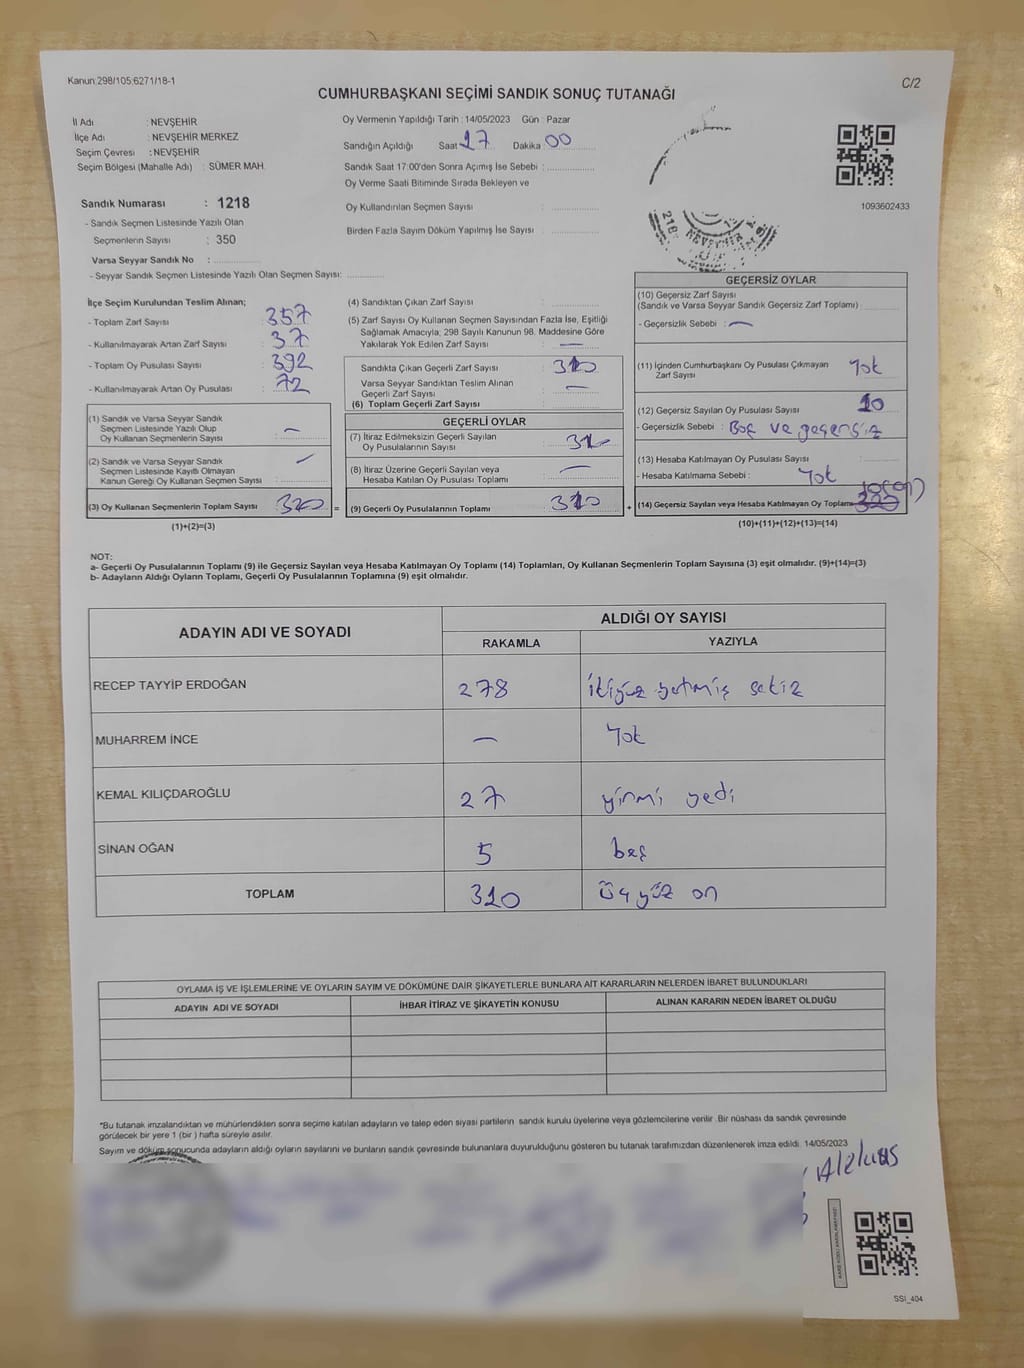 Kanun:298/105:6271/18-1
C/2
CUMHURBAŞKANI SEÇİMİ SANDIK SONUÇ TUTANAĞI
İl Adı : NEVŞEHİR
İlçe Adı : NEVŞEHİR MERKEZ
Seçim Çevresi : NEVŞEHİR
Seçim Bölgesi (Mahalle Adı) : SÜMER MAH.
Oy Vermenin Yapıldığı Tarih : 14/05/2023 Gün : Pazar
Sandığın Açıldığı Saat 17 Dakika 00
Sandık Saat 17:00'den Sonra Açımış İse Sebebi :
Oy Verme Saati Bitiminde Sırada Bekleyen ve
Oy Kullandırılan Seçmen Sayısı :
Birden Fazla Sayım Döküm Yapılmış İse Sayısı :
1093602433
Sandık Numarası : 1218
- Sandık Seçmen Listesinde Yazılı Olan
Seçmenlerin Sayısı : 350
Varsa Seyyar Sandık No :
- Seyyar Sandık Seçmen Listesinde Yazılı Olan Seçmen Sayısı:
218
NEVŞEHİR
İlçe Seçim Kurulundan Teslim Alınan;
- Toplam Zarf Sayısı : 357
- Kullanılmayarak Artan Zarf Sayısı : 37
- Toplam Oy Pusulası Sayısı : 392
- Kullanılmayarak Artan Oy Pusulası : 72
(1) Sandık ve Varsa Seyyar Sandık
Seçmen Listesinde Yazılı Olup
Oy Kullanan Seçmenlerin Sayısı : —
(2) Sandık ve Varsa Seyyar Sandık
Seçmen Listesinde Kayıtlı Olmayan
Kanun Gereği Oy Kullanan Seçmen Sayısı : —
(3) Oy Kullanan Seçmenlerin Toplam Sayısı 320
(1)+(2)=(3)
(4) Sandıktan Çıkan Zarf Sayısı :
(5) Zarf Sayısı Oy Kullanan Seçmen Sayısından Fazla İse, Eşitliği
Sağlamak Amacıyla, 298 Sayılı Kanunun 98. Maddesine Göre
Yakılarak Yok Edilen Zarf Sayısı : —
Sandıkta Çıkan Geçerli Zarf Sayısı :
Varsa Seyyar Sandıktan Teslim Alınan
Geçerli Zarf Sayısı : —
(6) Toplam Geçerli Zarf Sayısı :
GEÇERLİ OYLAR
(7) İtiraz Edilmeksizin Geçerli Sayılan
Oy Pusulasının Sayısı : 310
(8) İtiraz Üzerine Geçerli Sayılan veya
Hesaba Katılan Oy Pusulası Toplamı : —
=
(9) Geçerli Oy Pusulalarının Toplamı : 310
+
GEÇERSİZ OYLAR
(10) Geçersiz Zarf Sayısı
(Sandık ve Varsa Seyyar Sandık Geçersiz Zarf Toplamı)
- Geçersizlik Sebebi : —
(11) İçinden Cumhurbaşkanı Oy Pusulası Çıkmayan
Zarf Sayısı Yok
(12) Geçersiz Sayılan Oy Pusulası Sayısı : 10
- Geçersizlik Sebebi : Boş ve geçersiz
(13) Hesaba Katılmayan Oy Pusulası Sayısı :
- Hesaba Katılmama Sebebi : Yok
(14) Geçersiz Sayılan veya Hesaba Katılmayan Oy Toplamı
(10)+(11)+(12)+(13)=(14)
NOT:
a- Geçerli Oy Pusulalarının Toplamı (9) ile Geçersiz Sayılan veya Hesaba Katılmayan Oy Toplamı (14) Toplamları, Oy Kullanan Seçmenlerin Toplam Sayısına (3) eşit olmalıdır. (9)+(14)=(3)
b- Adayların Aldığı Oyların Toplamı, Geçerli Oy Pusulalarının Toplamına (9) eşit olmalıdır.
ADAYIN ADI VE SOYADI
ALDIĞI OY SAYISI
RAKAMLA YAZIYLA
RECEP TAYYİP ERDOĞAN 278 ikiyüz yetmiş sekiz
MUHARREM İNCE — Yok
KEMAL KILIÇDAROĞLU 27 yirmi yedi
SİNAN OĞAN 5 beş
TOPLAM 310 Üç yüz on
OYLAMA İŞ VE İŞLEMLERİNE VE OYLARIN SAYIM VE DÖKÜMÜNE DAİR ŞİKAYETLERLE BUNLARA AİT KARARLARIN NELERDEN İBARET BULUNDUKLARI
ADAYIN ADI VE SOYADI İHBAR İTİRAZ VE ŞİKAYETİN KONUSU ALINAN KARARIN NEDEN İBARET OLDUĞU
*Bu tutanak imzalandıktan ve mühürlendikten sonra seçime katılan adayların ve talep eden siyasi partilerin sandık kurulu üyelerine veya gözlemcilerine verilir. Bir nüshası da sandık çevresinde
görülecek bir yere 1 (bir) hafta süreyle asılır.
Sayım ve döküm sonucunda adayların aldığı oyların sayılarını ve bunların sandık çevresinde bulunanlara duyurulduğunu gösteren bu tutanak tarafımızdan düzenlenerek imza edildi. 14/05/2023
SSI_404